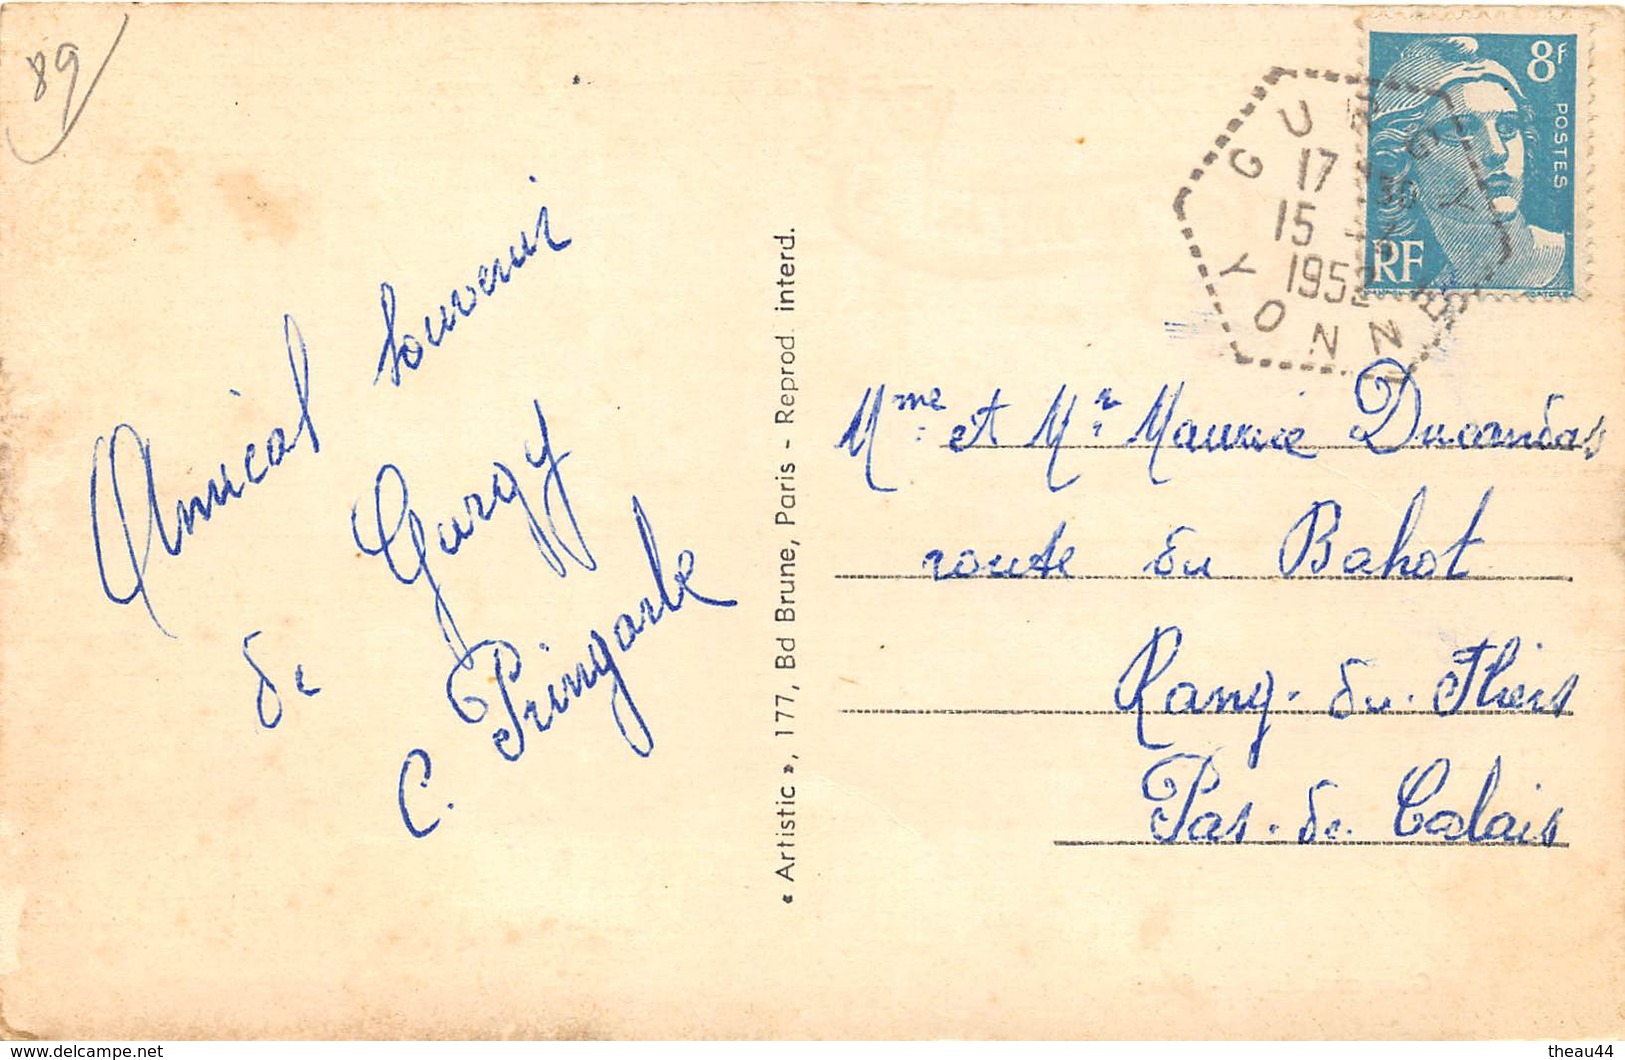 89
Amical Souvenir
de Gurgy
C. Pringarbe
« Artistic », 177, Bd Brune, Paris - Reprod. interd.
8F
POSTES
RF
GURGY
17 30
15
1952
YONNE
Mme et Mr Maurice Ducandas
route du Bahot
Rang-du-Fliers
Pas-de-Calais
www.delcampe.net
theau44